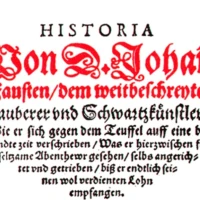 HISTORIA
Von D. Joha
austen/dem weitbeschreyte
auberer vnd Schwartzkünstler
ie er sich gegen dem Teuffel auff eine b
ndte zeit verschrieben/ Was er hierzwischen f
seltzame Abenthewr gesehen/ selbs angerich-
tet vnd getrieben/ biß er endtlich sei-
nen wol verdienten Lohn
empfangen.